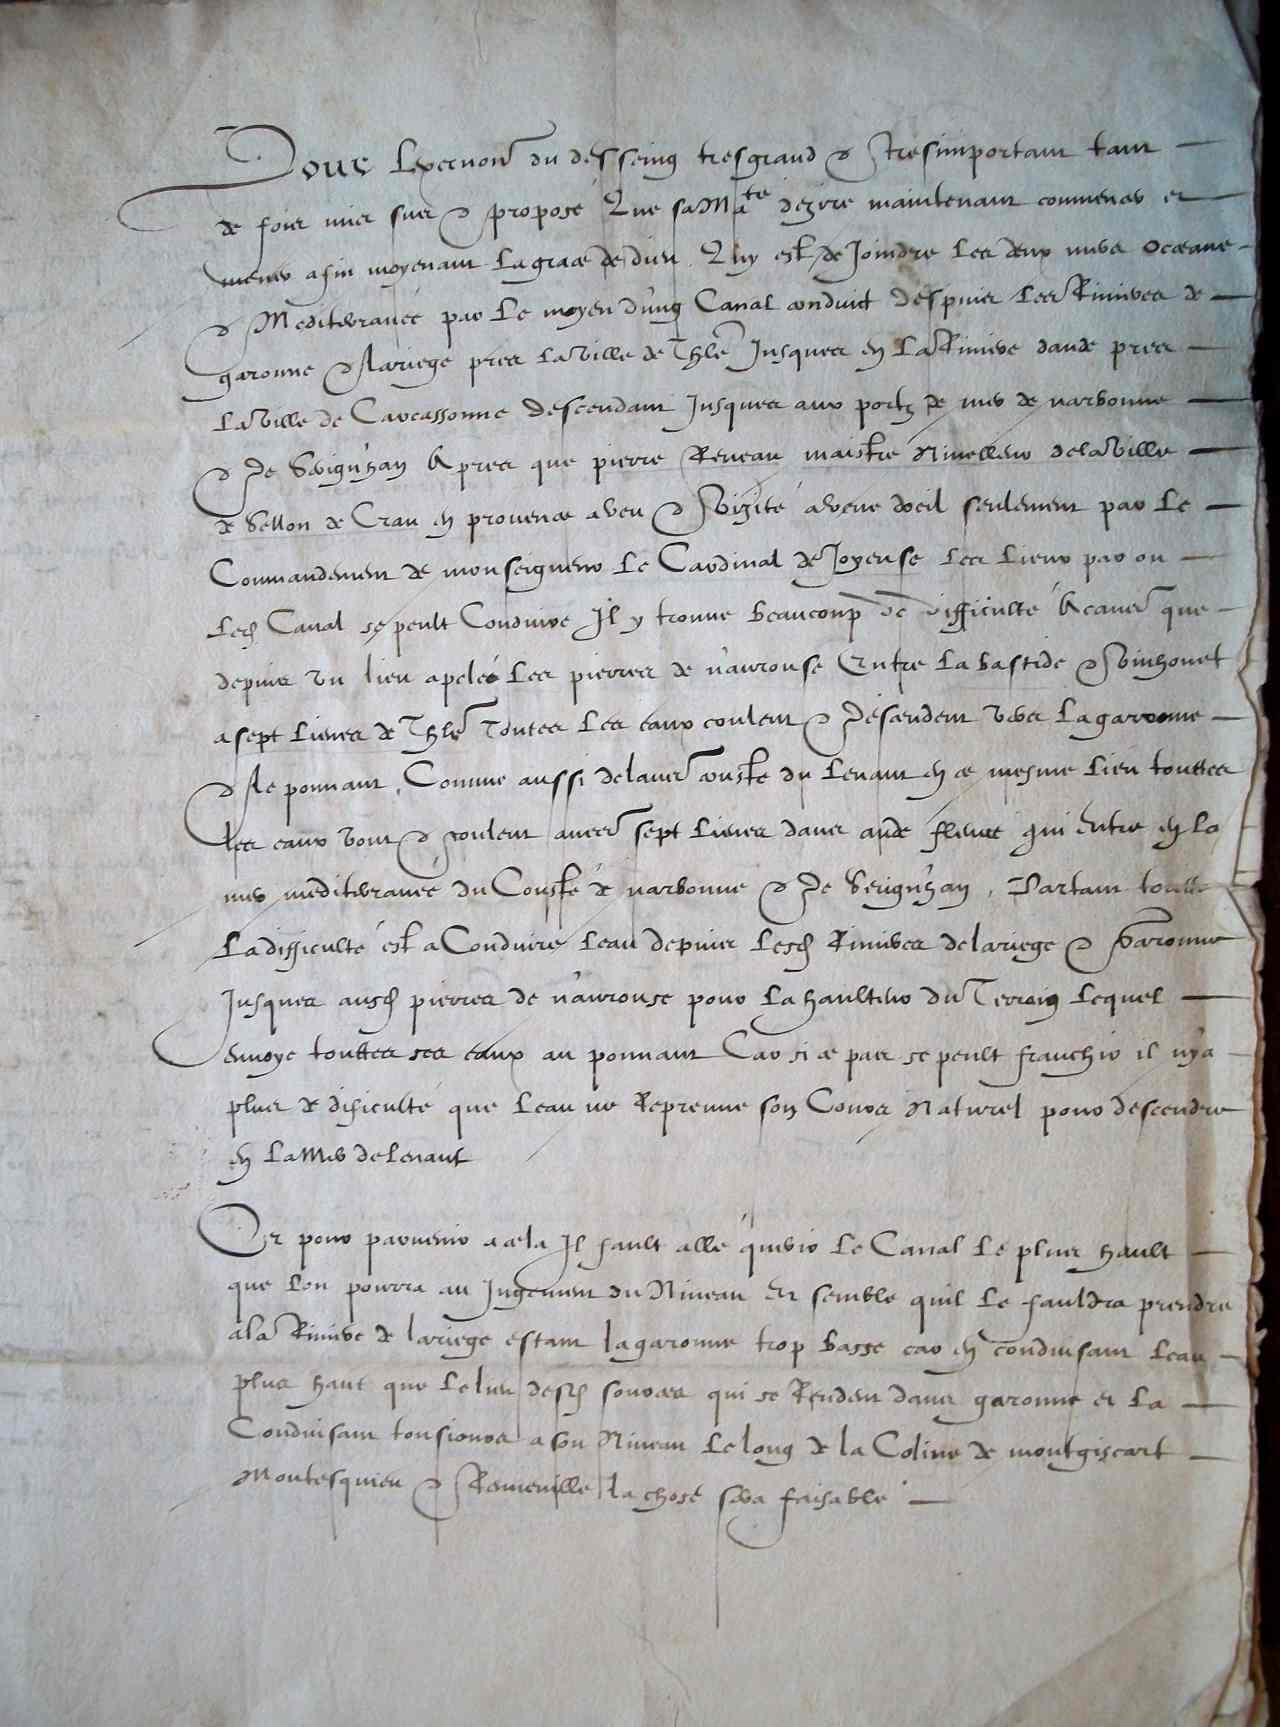 Pour l'exernoir du desseing tresgrand & tresimportant tant
de fois mis sus & proposé Que sa Mate dezire maintenant commencer et
mener a fin moyenant la grace de dieu. Quy est de Joindre les deux mers oceane
& Mediterranée par le moyen d'ung Canal conduict despuis les Rivieres de
garonne & lariege pres la ville de Thle Jusques en la Riviere daude pres
la ville de Carcassonne descendant Jusques aux portz de mer de narbonne
& de Serignhan Apres que pierre Reneau maistre Nivelleur de la ville
de Sellon de Crau en provence a veu & vizité a veue doeil seulement par le
Commandement de monseigneur le Cardinal de Joyeuse les lieux par ou
led Canal se peult Conduire Il y trouve beaucoup de difficulté A cause que
depuis un lieu apelés les pierres de naurouse Entre la bastide & Vinhonet
a sept lieues de Thle Toutes les eaux coulent & desandent vers la garonne
& le ponnant, Comme aussi de lautre couste du levant en ce mesme lieu touttes
les eaux vont & coulent autres sept lieues dans aude fleuve qui entre en la
mer mediterranée du Couste de narbonne & de Serignhan, Partant toutte
la difficulté est a Conduire leau depuis lesd Rivieres de lariege & Garonne
Jusques ausd pierres de naurouse pour la haulteur du Terroing lequel
envoye touttes ses eaux au ponnant Car si ce pas se peult franchir il n'y a
plus de dificulté que leau ne Reprenne son Cours Naturel pour descendre
en la Mer de levant
Or pour parvenir a cela Il fault allé quérir le Canal le plus hault
que lon pourra au Jugement du Niveau et semble quil le fauldra prendre
a la Riviere de lariege estant la garonne trop basse car en conduisant leau
plus haut que le lieu desd sources qui se Rendent dans garonne et la
Conduisant tousiours a son Niveau le long de la Coline de montgiscart
Montesquieu & Renneville la chose sera faisable